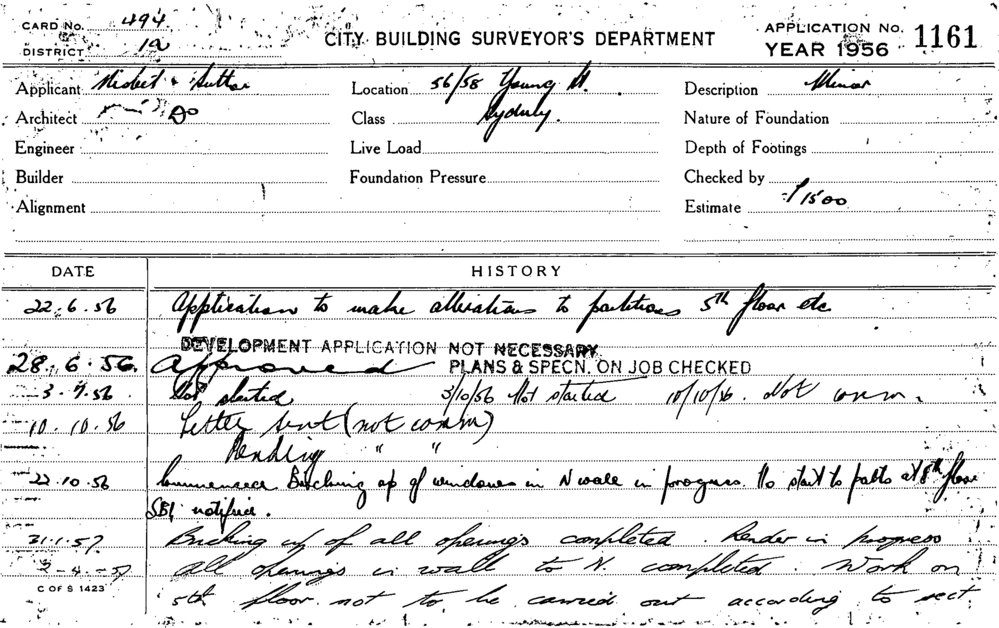 CARD No. 494
DISTRICT 1a
CITY BUILDING SURVEYOR'S DEPARTMENT
APPLICATION No. 1161
YEAR 1956
Applicant Nisbet & Location 56/58 Young St. Description Minor
Architect Do Class Sydney. Nature of Foundation
Engineer Live Load Depth of Footings
Builder Foundation Pressure Checked by
Alignment Estimate £1500
DATE HISTORY
22.6.56 Application to make alterations to partitions 5th floor etc
DEVELOPMENT APPLICATION NOT NECESSARY
28.6.56. Approved PLANS & SPECN. ON JOB CHECKED
3.9.56 Not started 3/10/56 Not started 10/10/56. Not comm.
10.10.56 Letter sent (not comm)
Pending " "
22.10.56 Commenced Bricking up of windows in N wall in progress. No start to parts at floor
SBI notified.
31.1.57 Bricking up of all openings completed. Render in progress
3-4-57 All openings in wall to N. completed. Work on
C OF S 1423
5th floor not to be carried out according to sect.